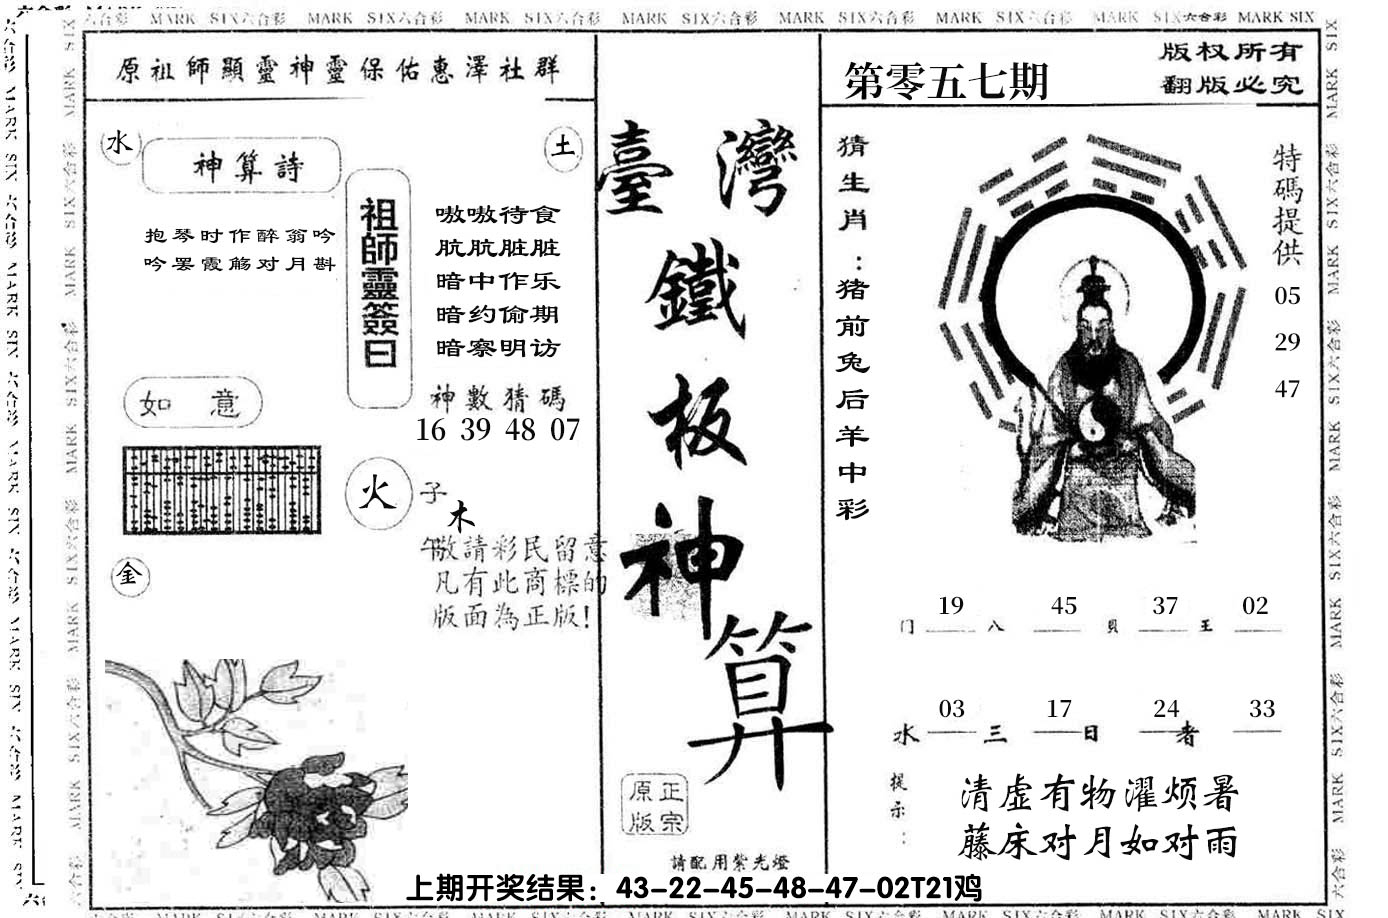 MARK SIX六合彩 MARK SIX六合彩 MARK SIX六合彩 MARK SIX六合彩 MARK SIX六合彩 MARK SIX六合彩 MARK SIX六合彩 MARK SIX
原祖師顯靈神靈保佑惠澤社群
水
神算詩
土
抱琴时作醉翁吟
吟罢霞觞对月斟
祖師靈簽曰
嗷嗷待食
肮肮脏脏
暗中作乐
暗约偷期
暗察明访
神數猜碼
16 39 48 07
如意
火
子
木
午
敬請彩民留意
凡有此商標的
版面為正版!
金
臺灣
鐵
板
神
算
正宗
原版
請配用紫光燈
第零五七期
版权所有
翻版必究
猜生肖：猪前兔后羊中彩
特碼提供
05
29
47
19 45 37 02
门 八 贝 王
03 17 24 33
水 三 日 者
提示：
清虚有物濯烦暑
藤床对月如对雨
上期开奖结果：43-22-45-48-47-02T21鸡